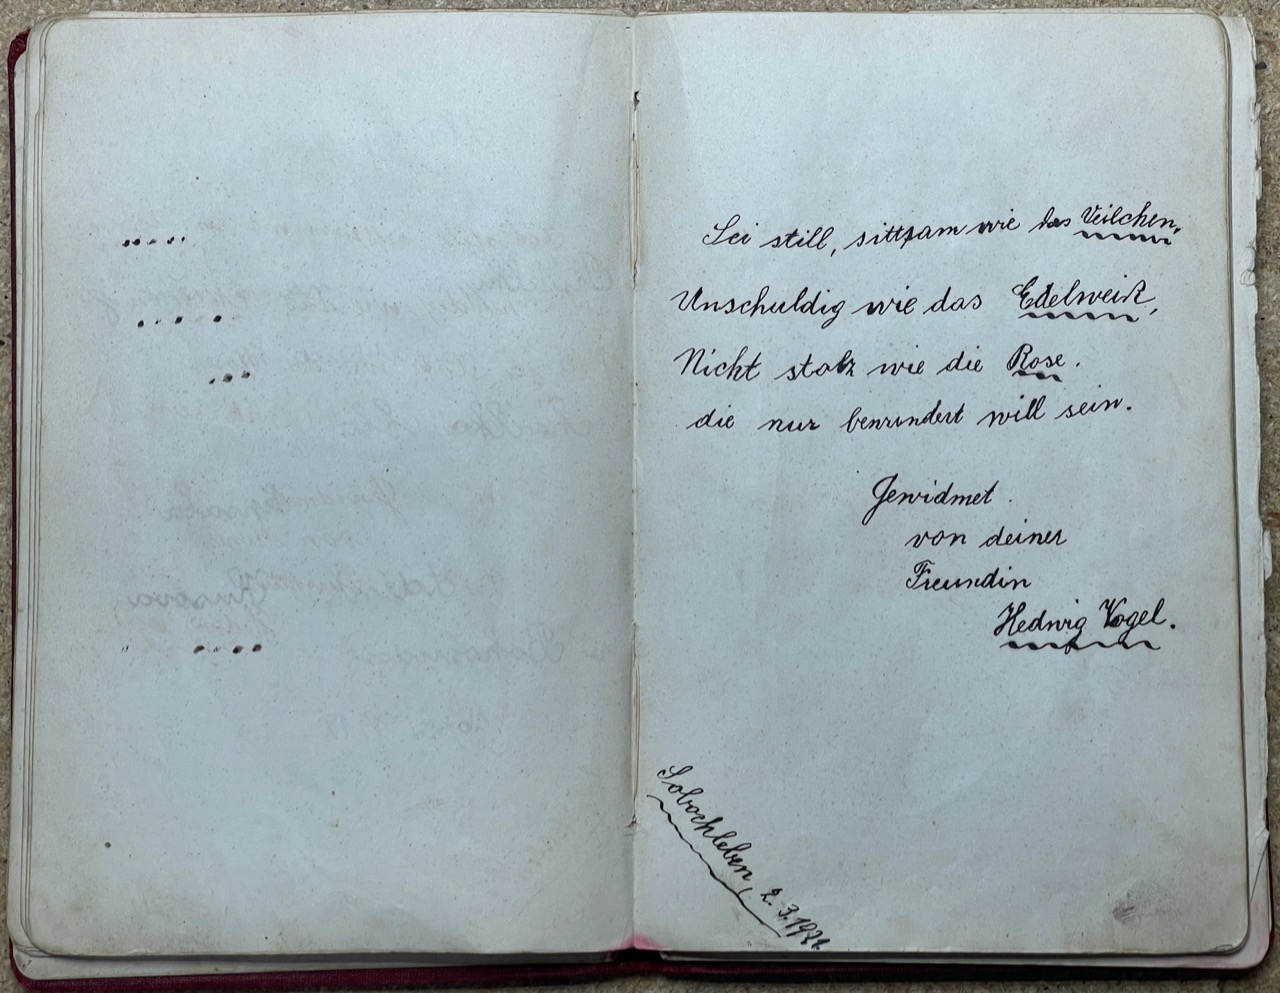 Sei still, sittsam wie das Veilchen,
Unschuldig wie das Edelweiß,
Nicht stolz wie die Rose.
die nur bewundert will sein.
Gewidmet.
von deiner
Freundin
Hedwig Vogel.
Sobochleben, 2. 3. 1921.